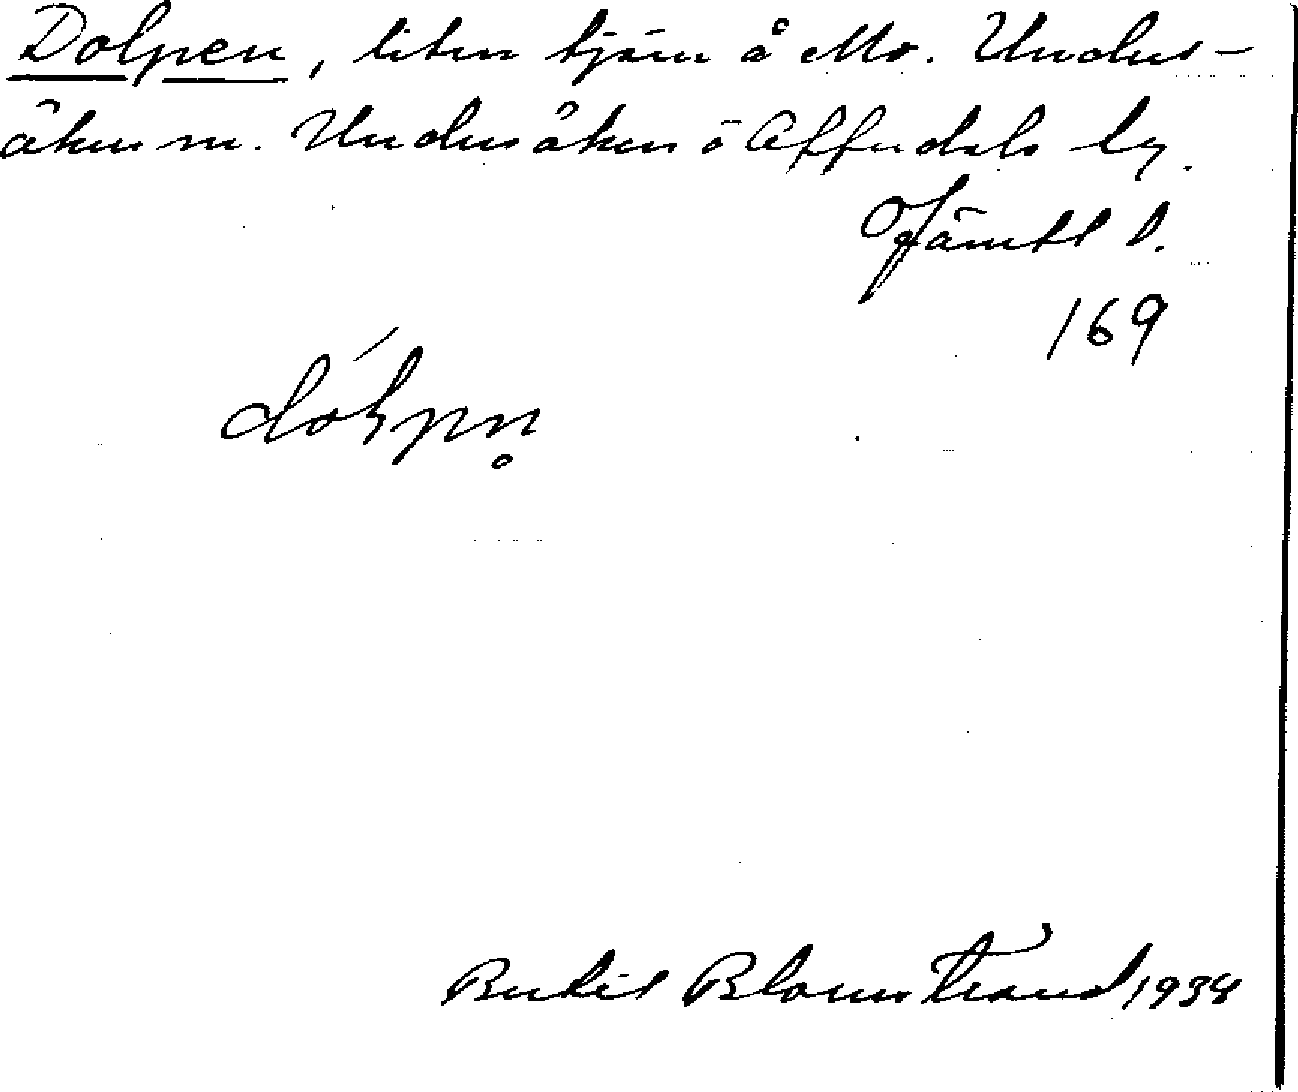 Dolpen, liten tjärn å Mo. Unders-
åkern. Undersåker o Offerdals by.
Jämtl l.
169
Bertil Blomstrand 1934